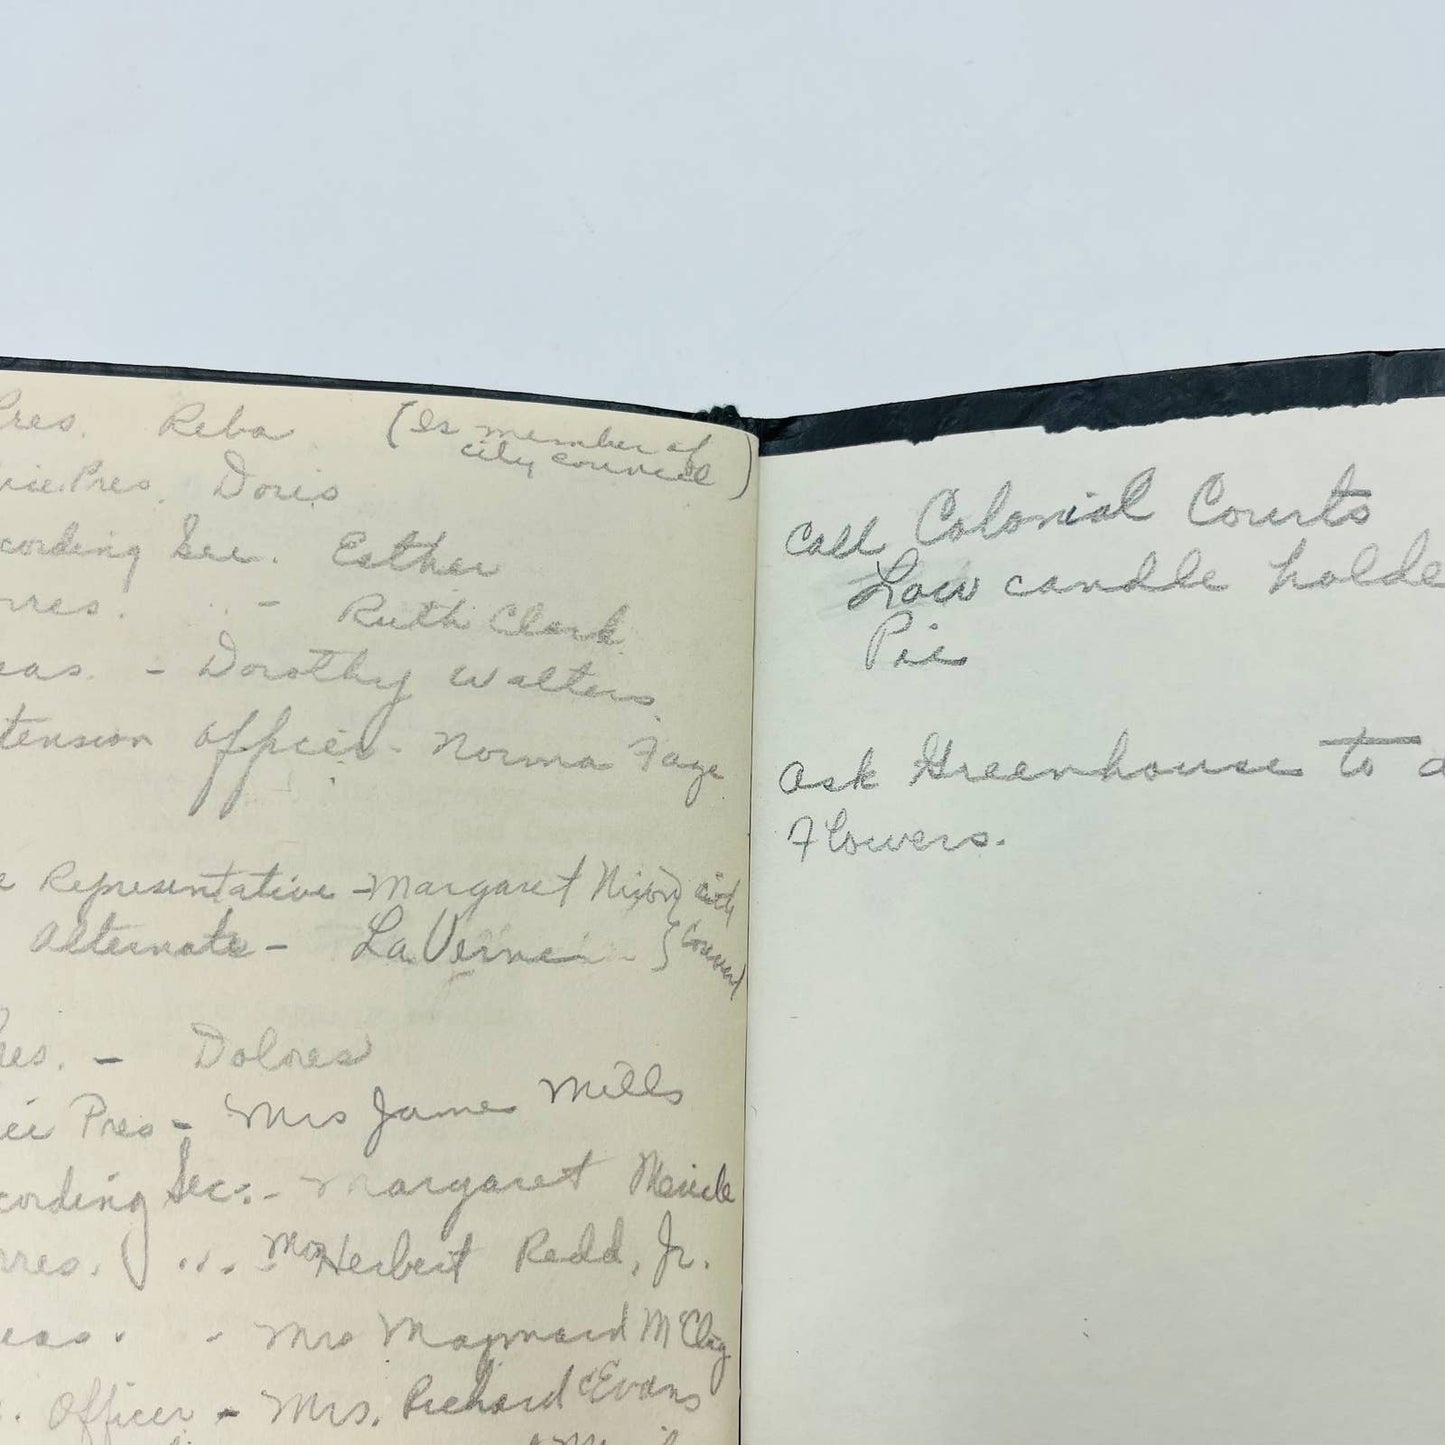 Pres. Reba (Is member of
city council)
Vice Pres. Doris
cording Sec. Esther
rres. .. - Ruth Clark
eas. - Dorothy Walters
tension Officer - Norma Faye
e Representative - Margaret Nixon } city
Alternate - LaVerne - } Council
Pres. - Dolores
ice Pres - Mrs James Mills
cording Sec. - Margaret
rres. " - Mrs Herbert Redd, Jr.
eas. - Mrs Maynard
. Officer - Mrs. Richard Evans
Call Colonial Courts
Low candle holde
Pie
Ask Greenhouse to
Flowers.